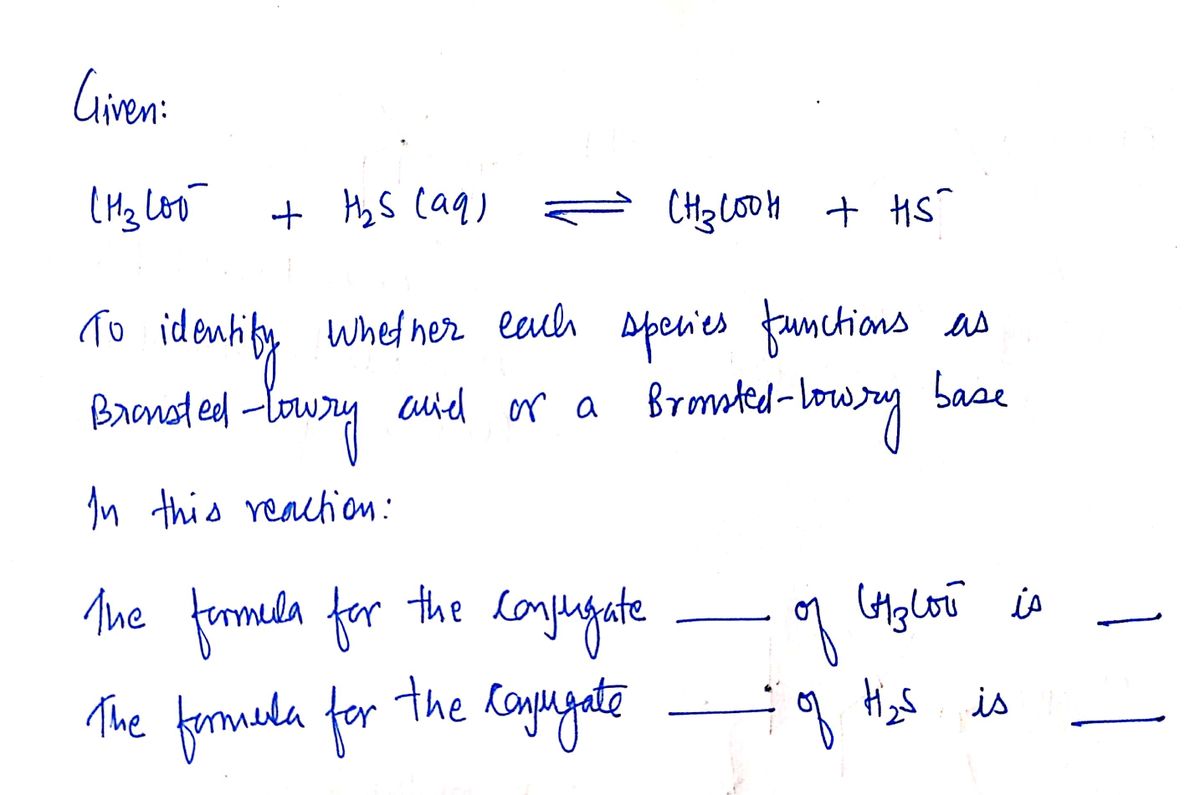 Given:
CH₃COO⁻ + H₂S (aq) ⇌ CH₃COOH + HS⁻
To identify whether each species functions as
Bronsted-lowry acid or a Bronsted-lowry base
In this reaction:
The formula for the conjugate ___ of CH₃COO⁻ is __
The formula for the conjugate ___ of H₂S is ___